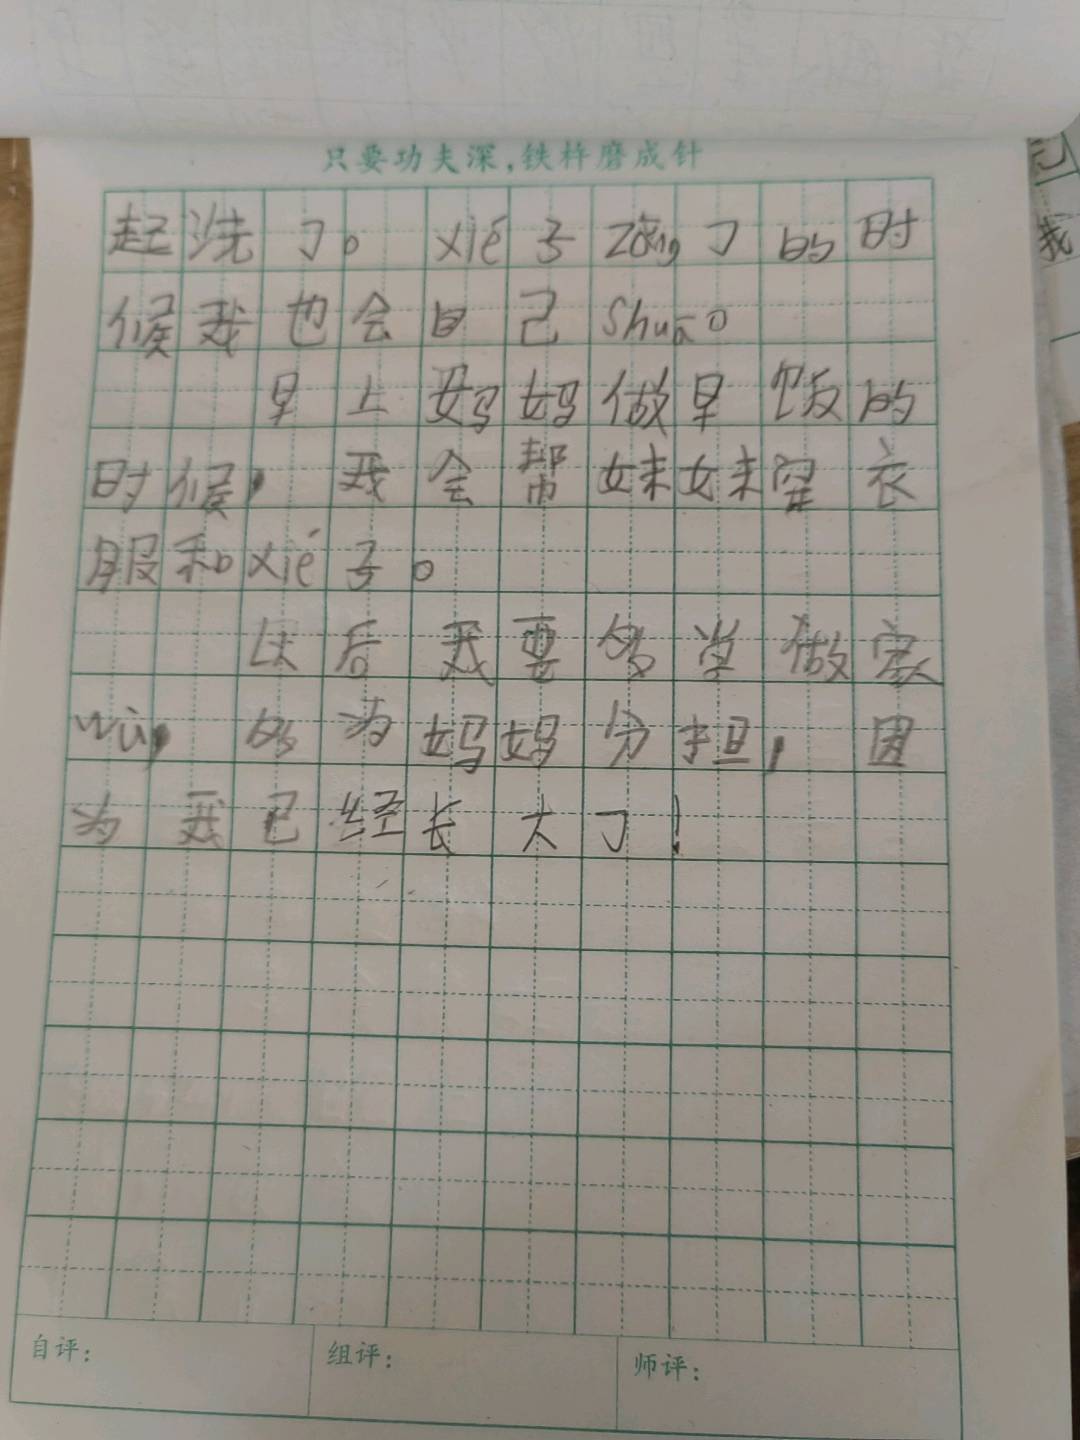 只要功夫深,铁杵磨成针
起洗了。xié子zāng了的时
候我也会自己shuā。
早上妈妈做早饭的
时候,我会帮妹妹穿衣
服和xié子。
以后我要多学做家
wù,多为妈妈分担,因
为我已经长大了!
自评:
组评:
师评:
我